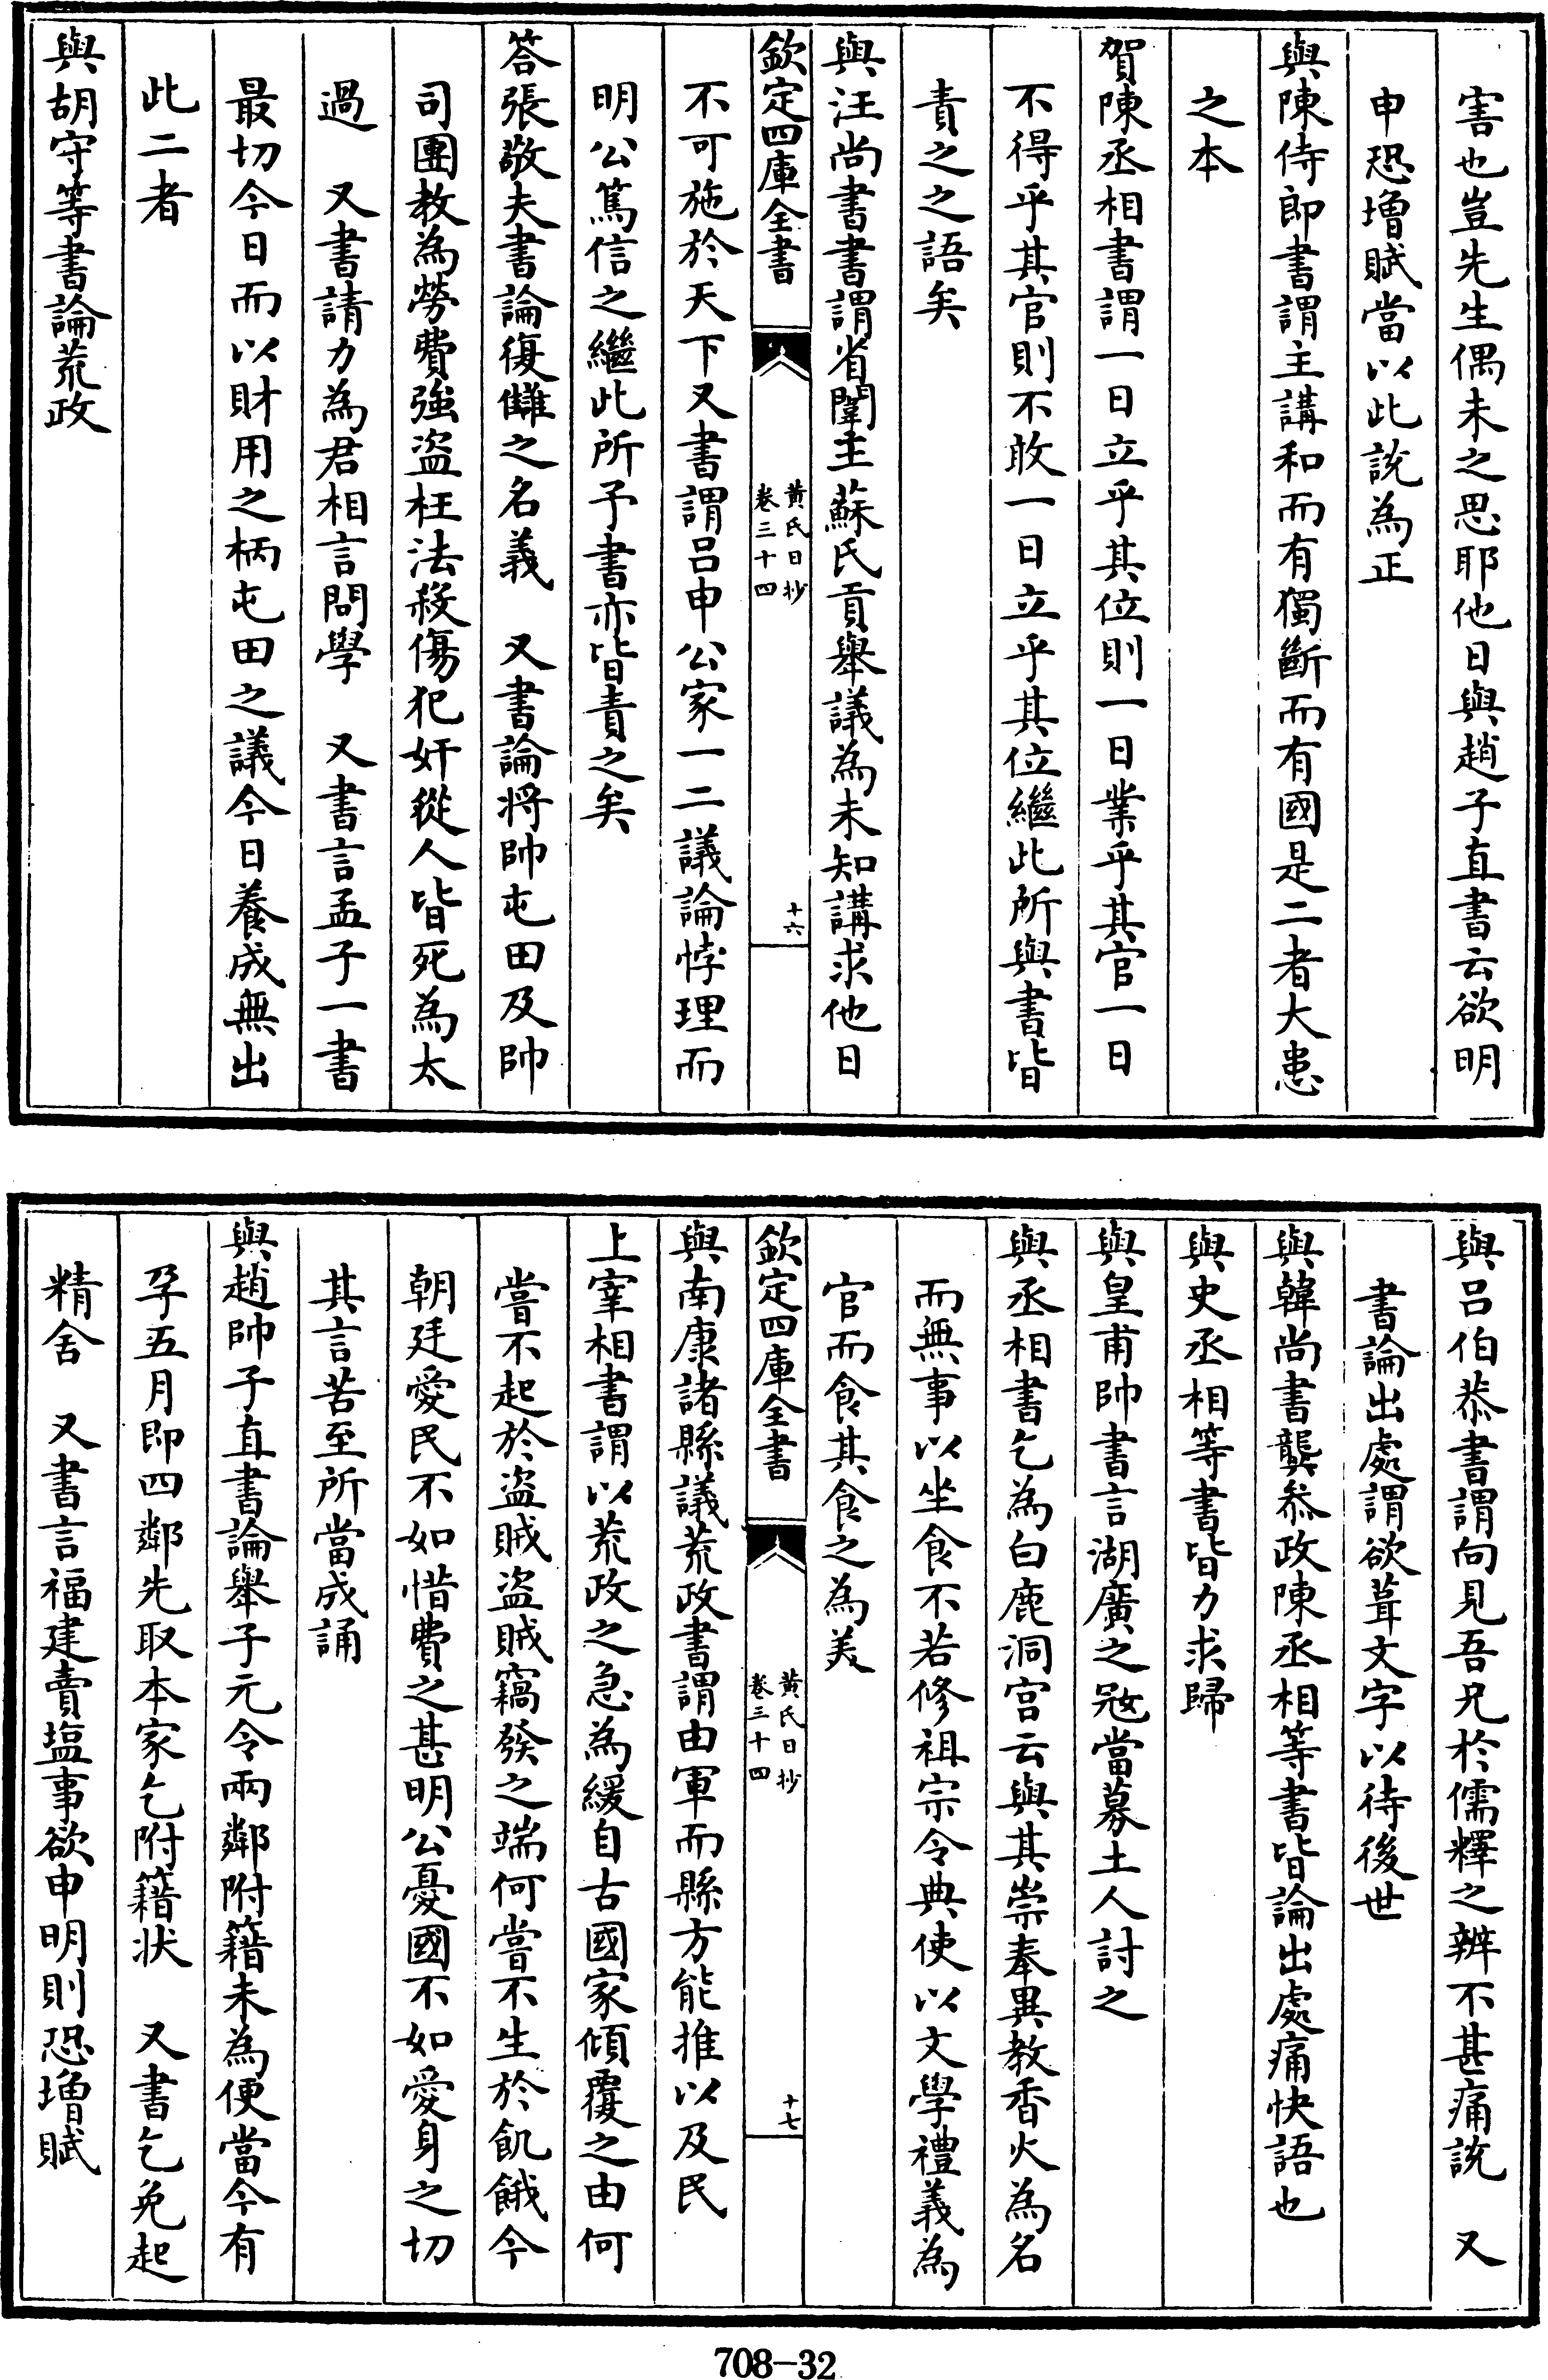 害也豈先生偶未之思耶他日與趙子直書云欲明
申恐增賦當以此說為正
與陳侍郎書謂主講和而有獨斷而有國是二者大患
之本
賀陳丞相書謂一日立乎其位則一日業乎其官一日
不得乎其官則不敢一日立乎其位繼此所與書皆
責之之語矣
與汪尚書書謂省闈主蘇氏貢舉議為未知講求他日
欽定四庫全書
黃氏日抄
卷三十四
十六
不可施於天下又書謂呂申公家一二議論悖理而
明公篤信之繼此所予書亦皆責之矣
答張敬夫書論復讎之名義　又書論將帥屯田及帥
司團教為勞費強盜枉法殺傷犯奸從人皆死為太
過　又書請力為君相言問學　又書言孟子一書
最切今日而以財用之柄屯田之議今日養成無出
此二者
與胡守等書論荒政
與呂伯恭書謂向見吾兄於儒釋之辨不甚痛說　又
書論出處謂欲葺文字以待後世
與韓尚書龔叅政陳丞相等書皆論出處痛快語也
與史丞相等書皆力求歸
與皇甫帥書言湖廣之冦當募土人討之
與丞相書乞為白鹿洞宫云與其崇奉異教香火為名
而無事以坐食不若修祖宗令典使以文學禮義為
官而食其食之為美
欽定四庫全書
黃氏日抄
卷三十四
十七
與南康諸縣議荒政書謂由軍而縣方能推以及民
上宰相書謂以荒政之急為緩自古國家傾覆之由何
嘗不起於盜賊盜賊竊發之端何嘗不生於飢餓今
朝廷愛民不如惜費之甚明公憂國不如愛身之切
其言苦至所當成誦
與趙帥子直書論舉子元令兩鄰附籍未為便當令有
孕五月即四鄰先取本家乞附籍狀　又書乞免起
精舍　又書言福建賣塩事欲申明則恐增賦
708-32